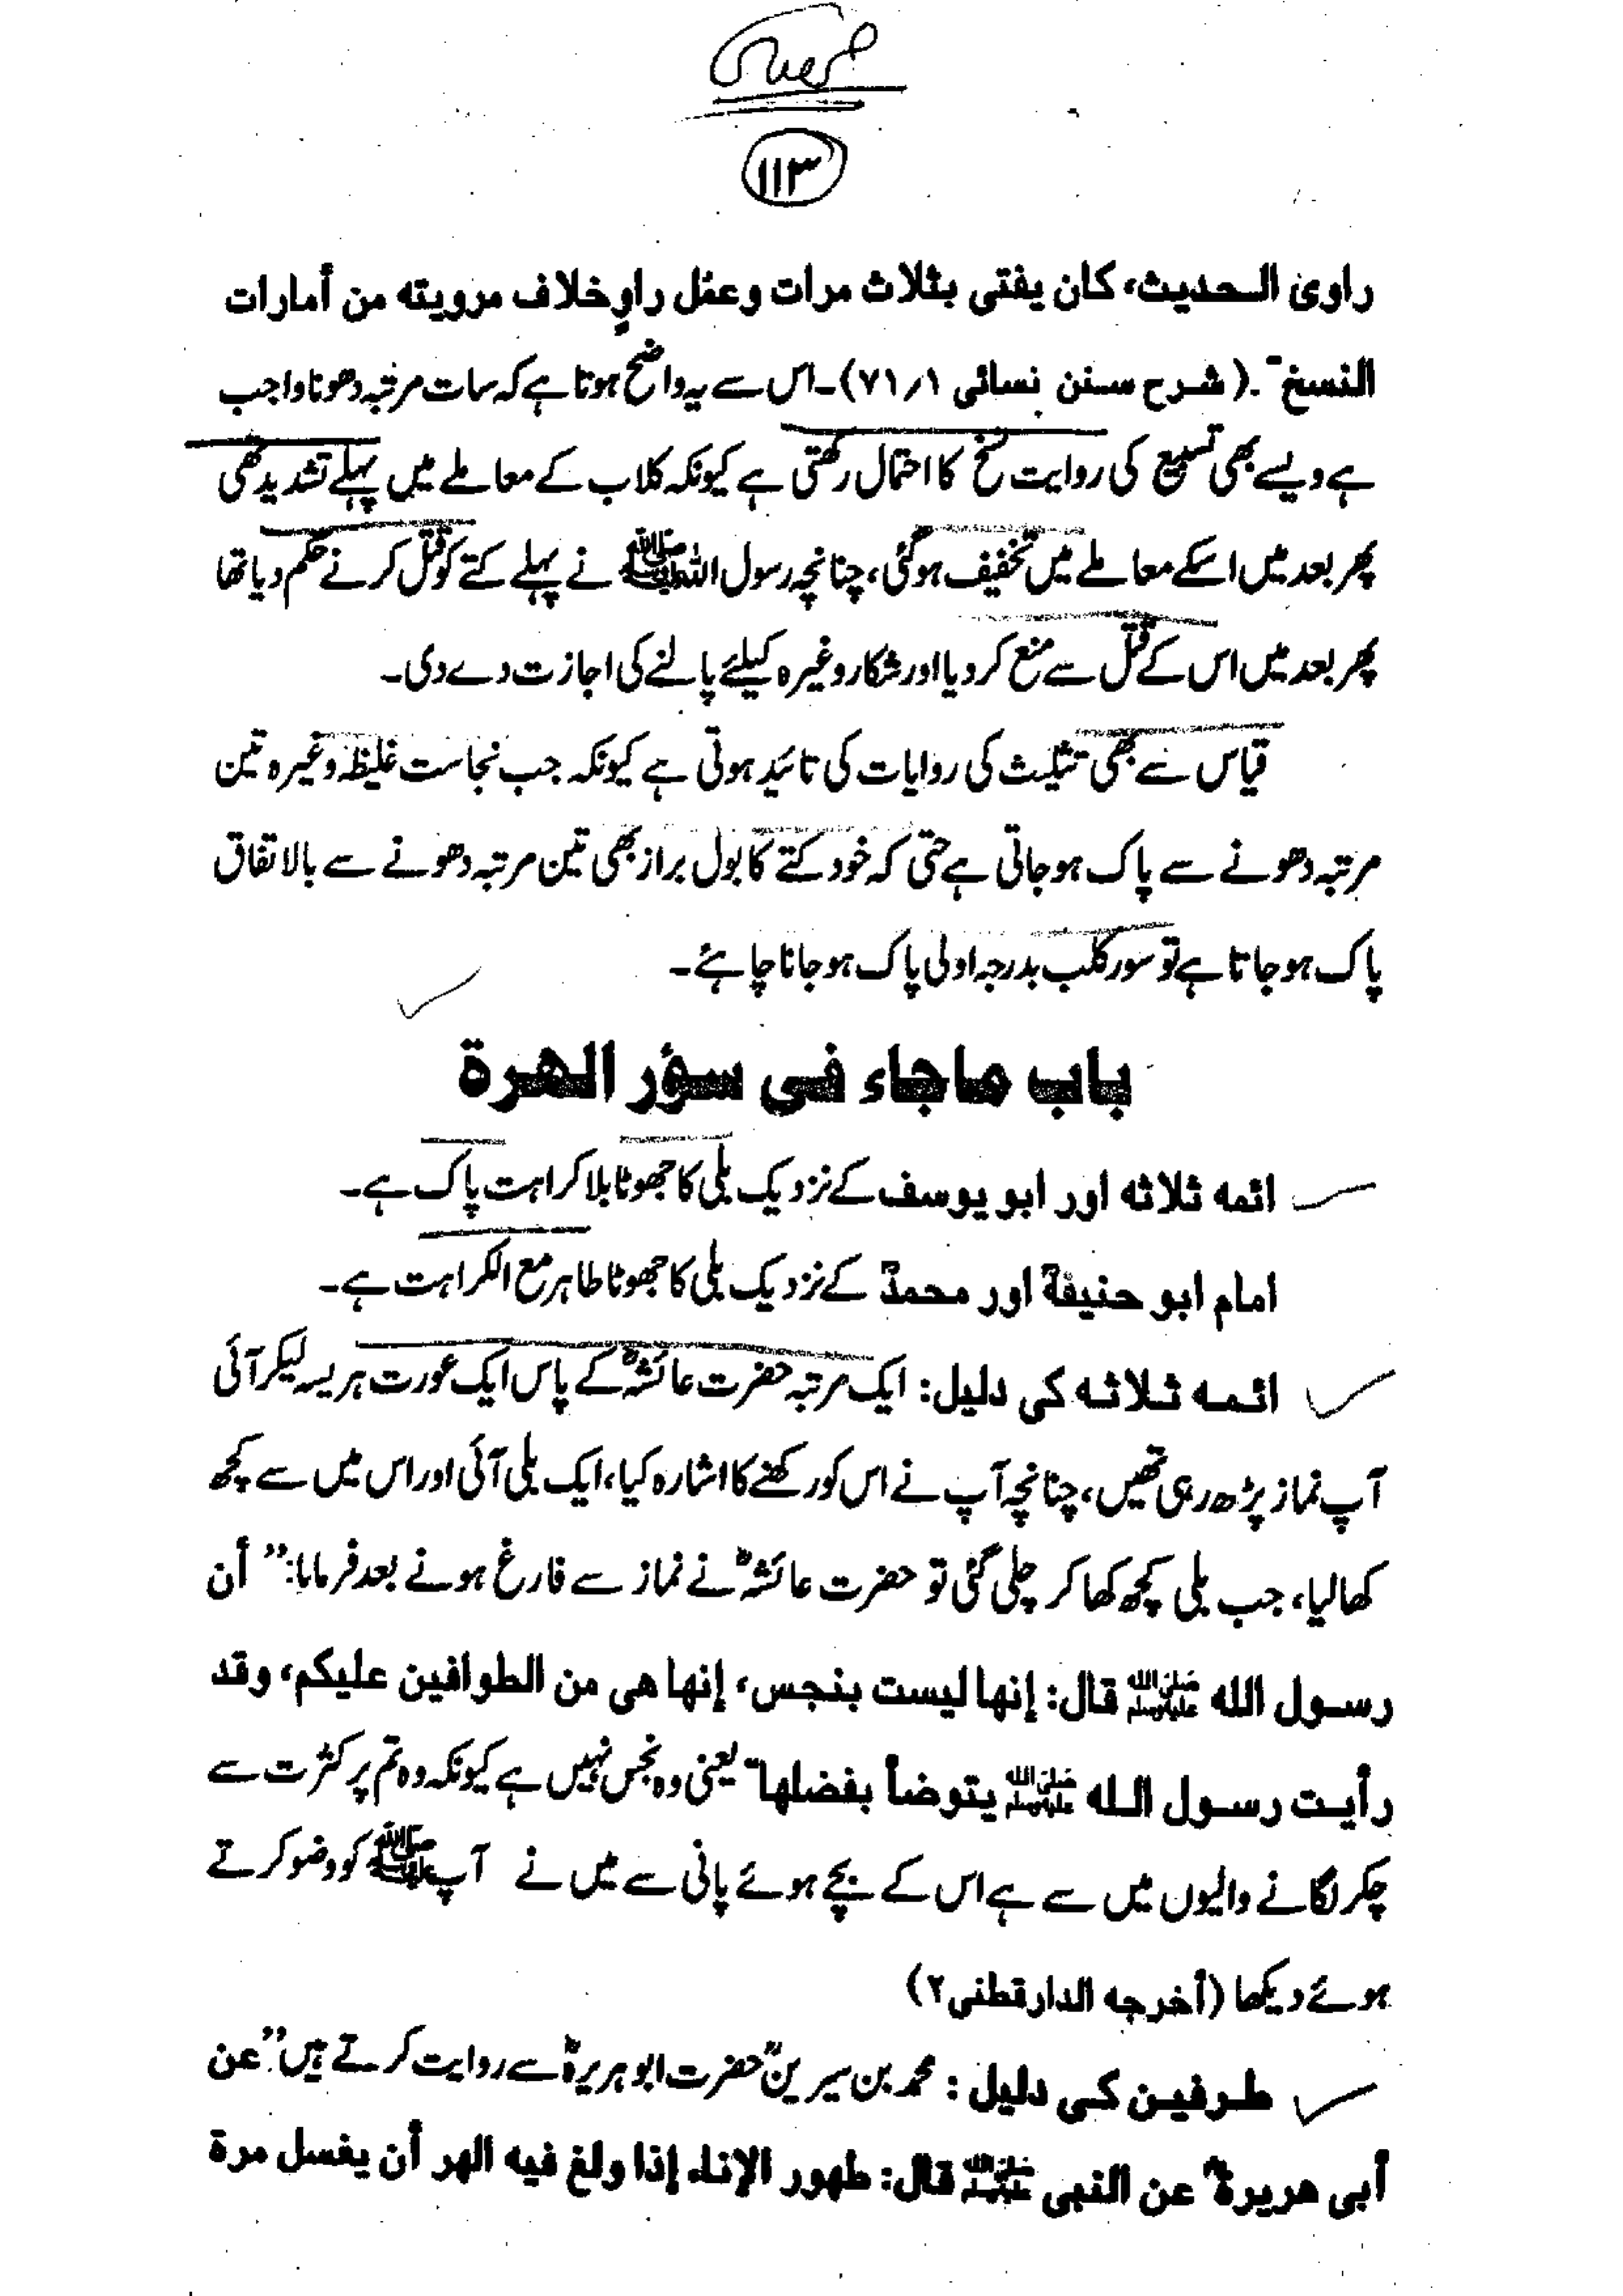 ۱۱۳
راوی الحدیث، کان یفتی بثلاث مرات وعمل راوٍ خلاف مرویته من أمارات
النسخ"۔ (شرح سنن نسائی ۷۱/۱)۔ اس سے یہ واضح ہوتا ہے کہ سات مرتبہ دھونا واجب
ہے ویسے بھی تسبیع کی روایت نسخ کا احتمال رکھتی ہے کیونکہ کلاب کے معاملے میں پہلے تشدید تھی
پھر بعد میں اسکے معاملے میں تخفیف ہوگئی، چنانچہ رسول اللہ ﷺ نے پہلے کتے کو قتل کرنے حکم دیا تھا
پھر بعد میں اس کے قتل سے منع کردیا اور شکار وغیرہ کیلئے پالنے کی اجازت دے دی۔
قیاس سے بھی تثلیث کی روایات کی تائید ہوتی ہے کیونکہ جب نجاست غلیظہ وغیرہ تین
مرتبہ دھونے سے پاک ہوجاتی ہے حتی کہ خود کتے کا بول براز بھی تین مرتبہ دھونے سے بالاتفاق
پاک ہوجاتا ہے تو سور کلب بدرجہ اولی پاک ہوجانا چاہئے۔
باب ماجاء فی سؤر الھرة
ائمه ثلاثه اور ابو یوسف کے نزدیک بلی کا جھوٹا بلا کراہت پاک ہے۔
امام ابو حنیفةؒ اور محمدؒ کے نزدیک بلی کا جھوٹا طاہر مع الکراہت ہے۔
ائمه ثلاثه کی دلیل: ایک مرتبہ حضرت عائشہؓ کے پاس ایک عورت ہریسہ لیکر آئی
آپ نماز پڑھ رہی تھیں، چنانچہ آپ نے اس کو رکھنے کا اشارہ کیا، ایک بلی آئی اور اس میں سے کچھ
کھالیا، جب بلی کچھ کھا کر چلی گئی تو حضرت عائشہؓ نے نماز سے فارغ ہونے بعد فرمایا: "أن
رسول الله ﷺ قال: إنها ليست بنجس، إنها هی من الطوافین علیکم، وقد
رأیت رسول الله ﷺ یتوضأ بفضلها" یعنی وہ نجس نہیں ہے کیونکہ وہ تم پر کثرت سے
چکر لگانے والیوں میں سے ہے اس کے بچے ہوئے پانی سے میں نے آپ ﷺ کو وضو کرتے
ہوئے دیکھا (أخرجه الدارقطنی ۲)
طرفین کی دلیل: محمد بن سیرینؒ حضرت ابو ہریرہؓ سے روایت کرتے ہیں "عن
أبی هریرةؓ عن النبی ﷺ قال: طهور الإناء إذا ولغ فیه الهر أن یغسل مرة